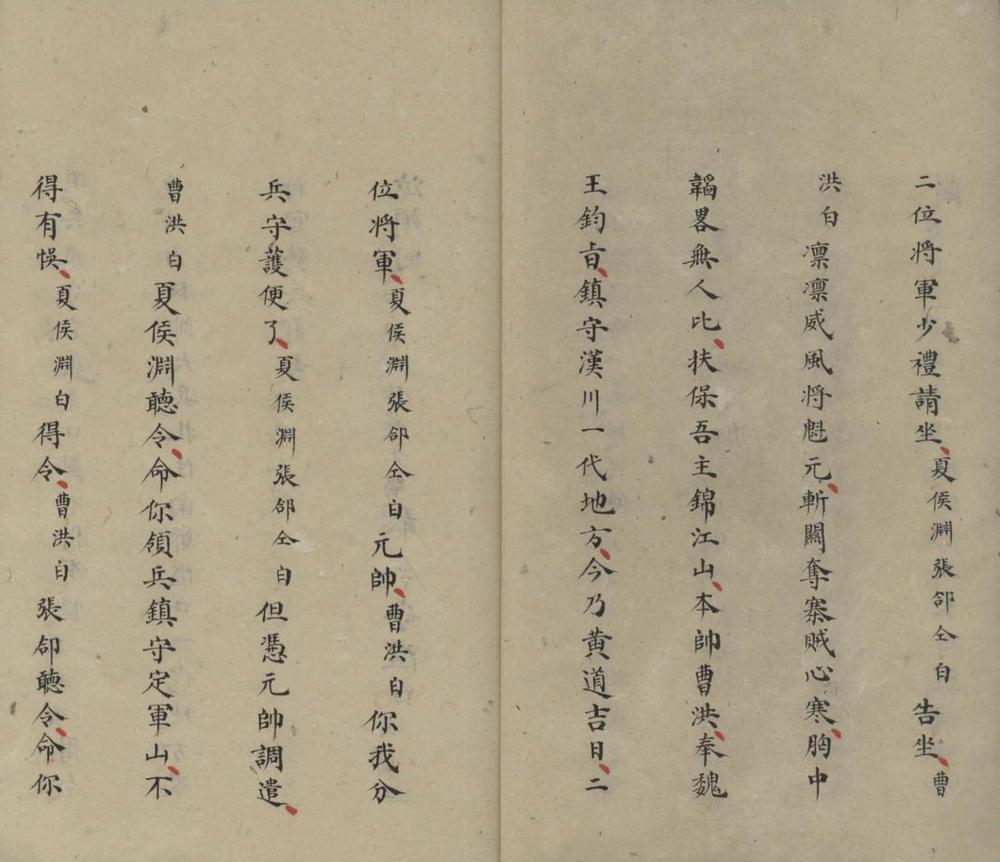 二位將軍少禮請坐、夏侯淵張郃仝白告坐、曹
洪白凛凛威風將魁元、斬關奪寨賊心寒、胸中
韜畧無人比、扶保吾主錦江山、本帥曹洪、奉魏
王鈞旨、鎮守漢川一代地方、今乃黃道吉日、二
位將軍、夏侯淵張郃仝白元帥、曹洪白你我分
兵守護便了、夏侯淵張郃仝白但憑元帥調遣、
曹洪白夏侯淵聽令、命你領兵鎮守定軍山、不
得有悞、夏侯淵白得令、曹洪白張郃聽令、命你